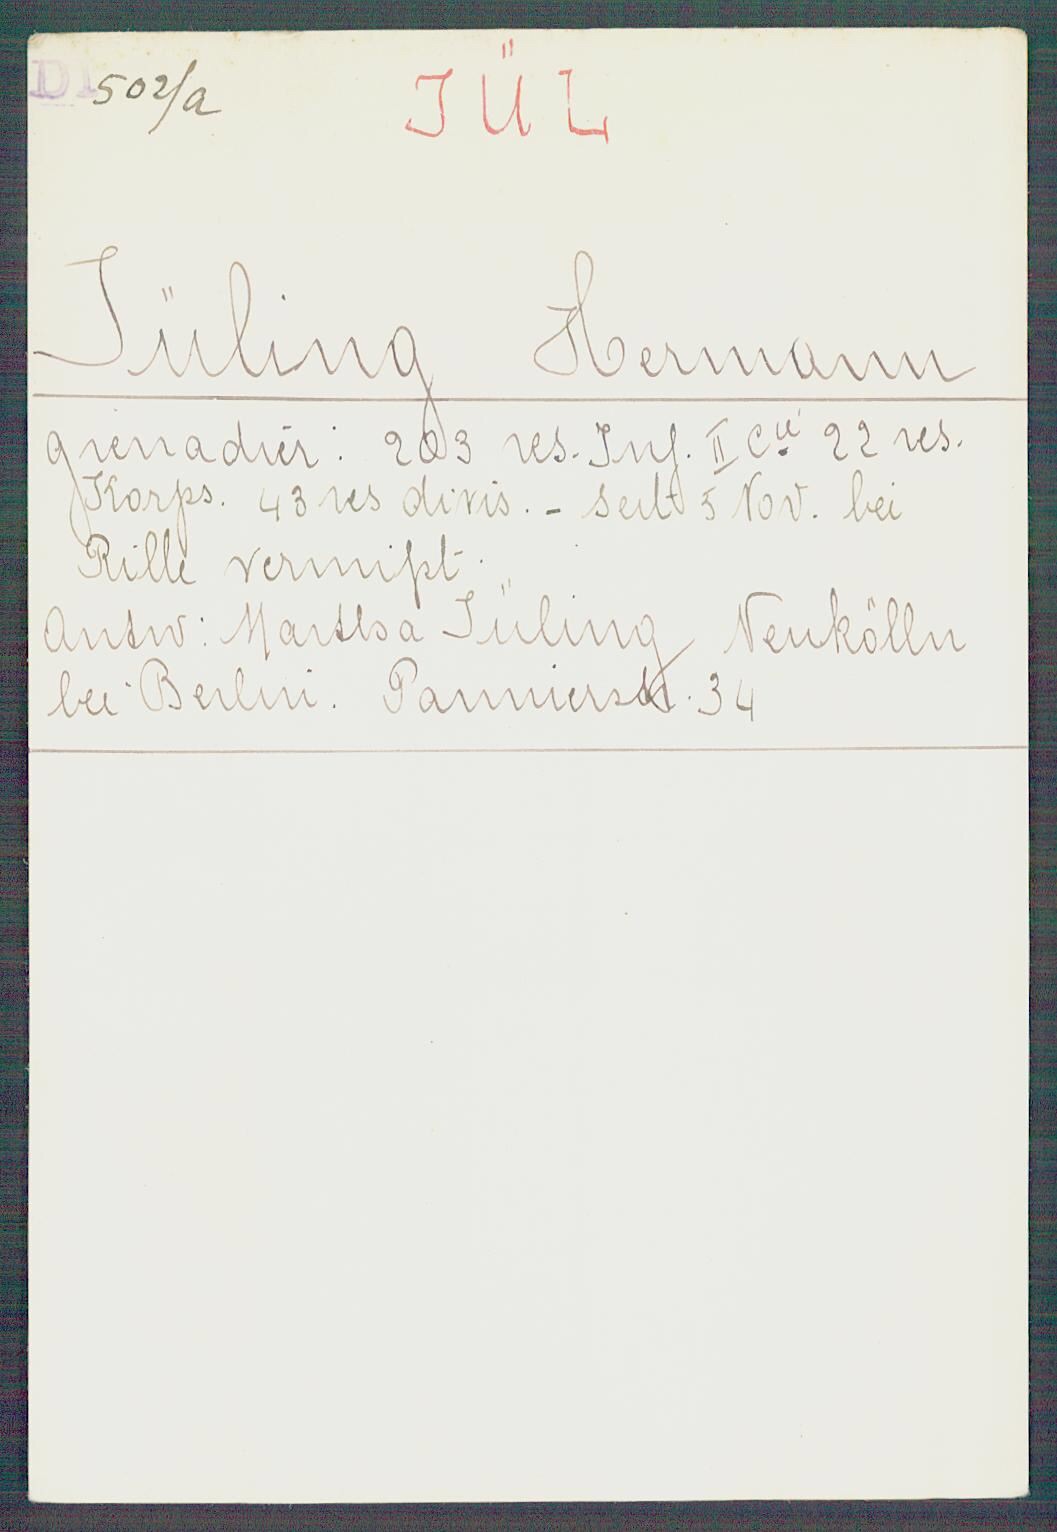 D1 502/a
JÜL
Jüling Hermann
grenadier: 203 res. Inf. II Cie 22 res.
Korps. 43 res divis. - seit 5 Nov. bei
Rille vermißt.
Antw: Martha Jüling Neukölln
bei Berlin. Pannierstr. 34